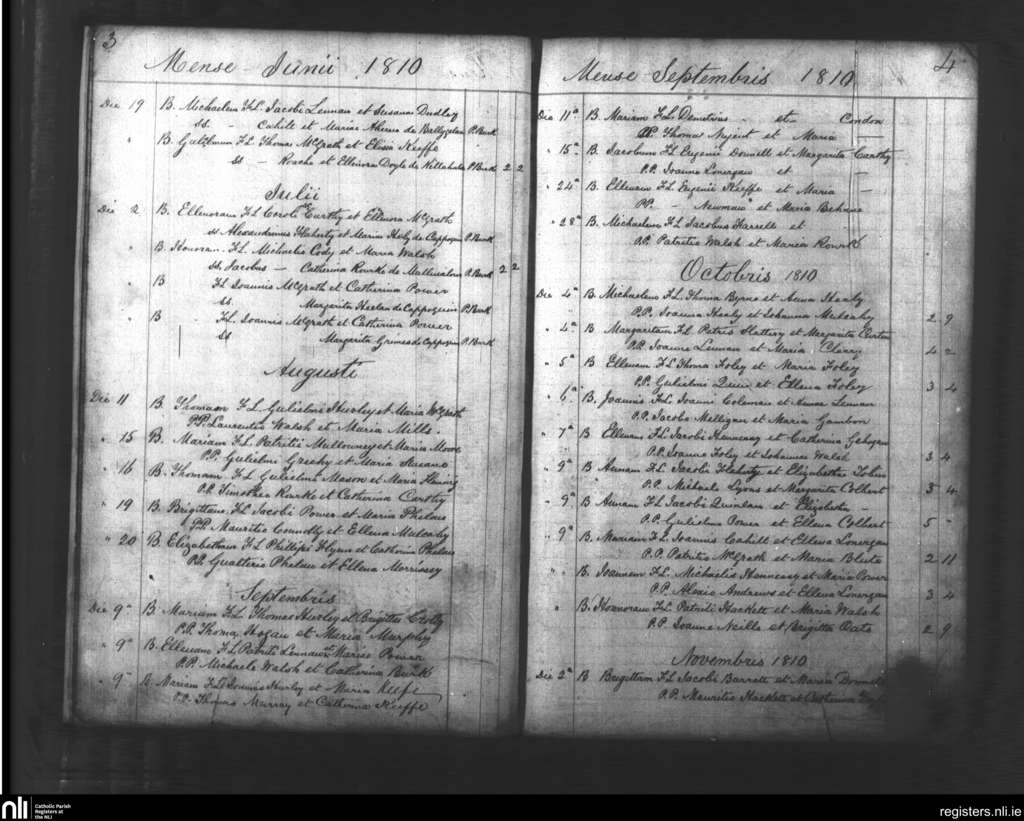 3
Mense Junii 1810
Die 19 B. Michaelem F.L. Jacobi Lennan et Susanna Dudley
ss. - Cahill et Mariae Aherne de P. Burk
" B. F.L. Thomas McGrath et Elisia Keeffe
ss - Roache et Ellinora Doyle de P. Burk 2 2
Julii
Die 2 B. Ellenoram F.L. Caroli Carthy et Ellenora McGrath
ss Alexandrinus Flaherty et Maria Healy de Cappoquin P. Burk
" B. Honoran. F.L. Michaelis Cody et Maria Walsh
ss. Jacobus - Catherina Rourke de P. Burk 2 2
" B F.L. Joannis McGrath et Catherina Power
ss. Margarita Heelan de Cappoquin P. Burk
" B F.L. Joannis McGrath et Catherina Power
ss Margarita Grimes de Cappoquin P. Burk
Augusti
Die 11 B. Thomam F.L. Gulielmi Hurley et Maria McGrath
P.P. Laurentio Walsh et Maria Mills.
" 15 B. Mariam F.L. Patritii Mullowney et Maria Moore
P.P. Gulielmi Greehy et Maria
" 16 B. Thomam F.L. Gulielmi Mason et Maria
P.P. Timothea Rourke et Catherina Carthy
" 19 B. Brigittam F.L. Jacobi Power et Maria Phelan
P.P. Mauritio Connolly et Ellena Mulcahy
" 20 B. Elizabetham F.L. Phillipi Flynn et Catherina Phelan
P.P. Gualterio Phelan et Ellena Morrissey
Septembris
Die 9a B. Mariam F.L. Thomas Hurley et Brigitta Crotty
P.P. Thoma Hogan et Maria Murphy
" 9a B. Ellenam F.L. Patritii Lennan et Maria Power
P.P. Michaele Walsh et Catherina Burk
" 9a B. Mariam F.L. Joannis Hurley et Maria Keefe
P.P. Thomas Murray et Catherina Keeffe
4
Mense Septembris 1810
Die 11a B. Mariam F.L. Demetrius - et - Condon
P.P. Thomas Nugent et Maria -
" 15a B. Jacobum F.L. Eugenii Donnell et Margarita Carthy
P.P. Joanne Lonergan et -
" 24a B. Ellenam F.L. Eugenii Keeffe et Maria -
P.P. - Newman et Maria Behane
" 28a B. Michaelem F.L. Jacobus Farrell et
P.P. Patritio Walsh et Maria Rourke
Octobris 1810
Die 4a B. Michaelem F.L. Thoma Byrne et Anna Healy
P.P. Joanna Healy et Johanna Mulcahy 2 9
" 4a B Margaritam F.L. Patris Slattery et Margarita Curtin
P.P. Joanne Lennan et Maria Clancy 4 2
" 5a B Ellenam F.L. Thoma Foley et Maria Foley
P.P. Gulielmi Quin et Ellena Foley 3 4
" 6a B. Joannis F.L. Joanni Coleman et Anna Lennan
P.P. Jacobo Melligan et Maria Gambon
" 7a B Ellenam F.L. Jacobi Hennessy et Catherina
P.P. Joanne Foley et Johanna Walsh 3 4
" 9a B Annam F.L. Jacobi Flaherty et Elizabetha Tobin
P.P. Michaele Lyons et Margarita Colbert 3 4
" 9a B Annam F.L. Jacobi Quinlan et Elizabetha -
P.P. Gulielmo Power et Ellena Colbert 5 -
" 9a B. Mariam F.L. Joannis Cahill et Ellena Lonergan
P.P. Patritio McGrath et Maria 2 11
" " B. Joannem F.L. Michaelis Hennessy et Maria Power
P.P. Alexio Andrews et Ellena Lonergan 3 4
" B. Honoram F.L. Patritii Hackett et Maria Walsh
P.P. Joanne Neille et Brigitta Oats 2 9
Novembris 1810
Die 2a B Brigittam F.L. Jacobi Barrett et Maria
P.P. Mauritio Hackett et Catherina
nli
Catholic Parish
Registers at
the NLI
registers.nli.ie